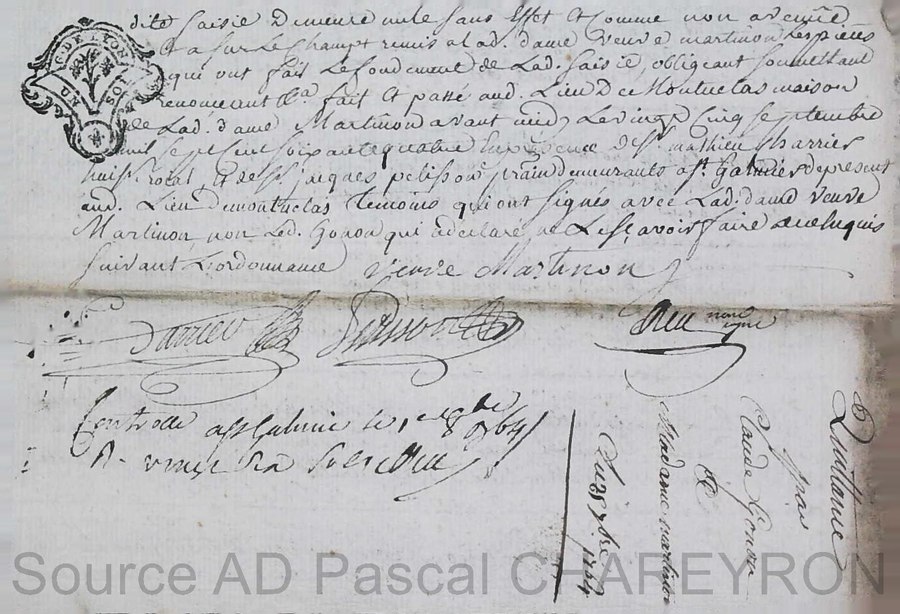 dite saisie demeure nule sans Effet et comme non avenüe
Et a sur le champt remis a lad. dame veuve martinon les pieces
qui ont fait le fondement de Lad. saisie, obligeant soumettant
renonceant &a fait et passé aud. Lieu de Montuclas maison
de Lad. dame Martinon avant midy Le vingt Cinq septembre
mil sept Cent soixante quatre En presence de sr mathieu
huissr Royal et de sr jacques pelisson demeurants a st Galmier de present
aud. Lieu de montuclas temoins qui ont signés avec Lad. dame veuve
Martinon non Led. Gonon qui a declaré ne Le sçavoir faire de ce Enquis
suivant L'ordonnance veuve Martinon
pelisson
Controllé a st Galmier le 1er 8bre 1764
R. vingt six sols
C. DE LYON
UN SOL
Quittance
Claude Gonon
A
Madame martinon
Du 25 7bre 1764
Source AD Pascal CHAREYRON